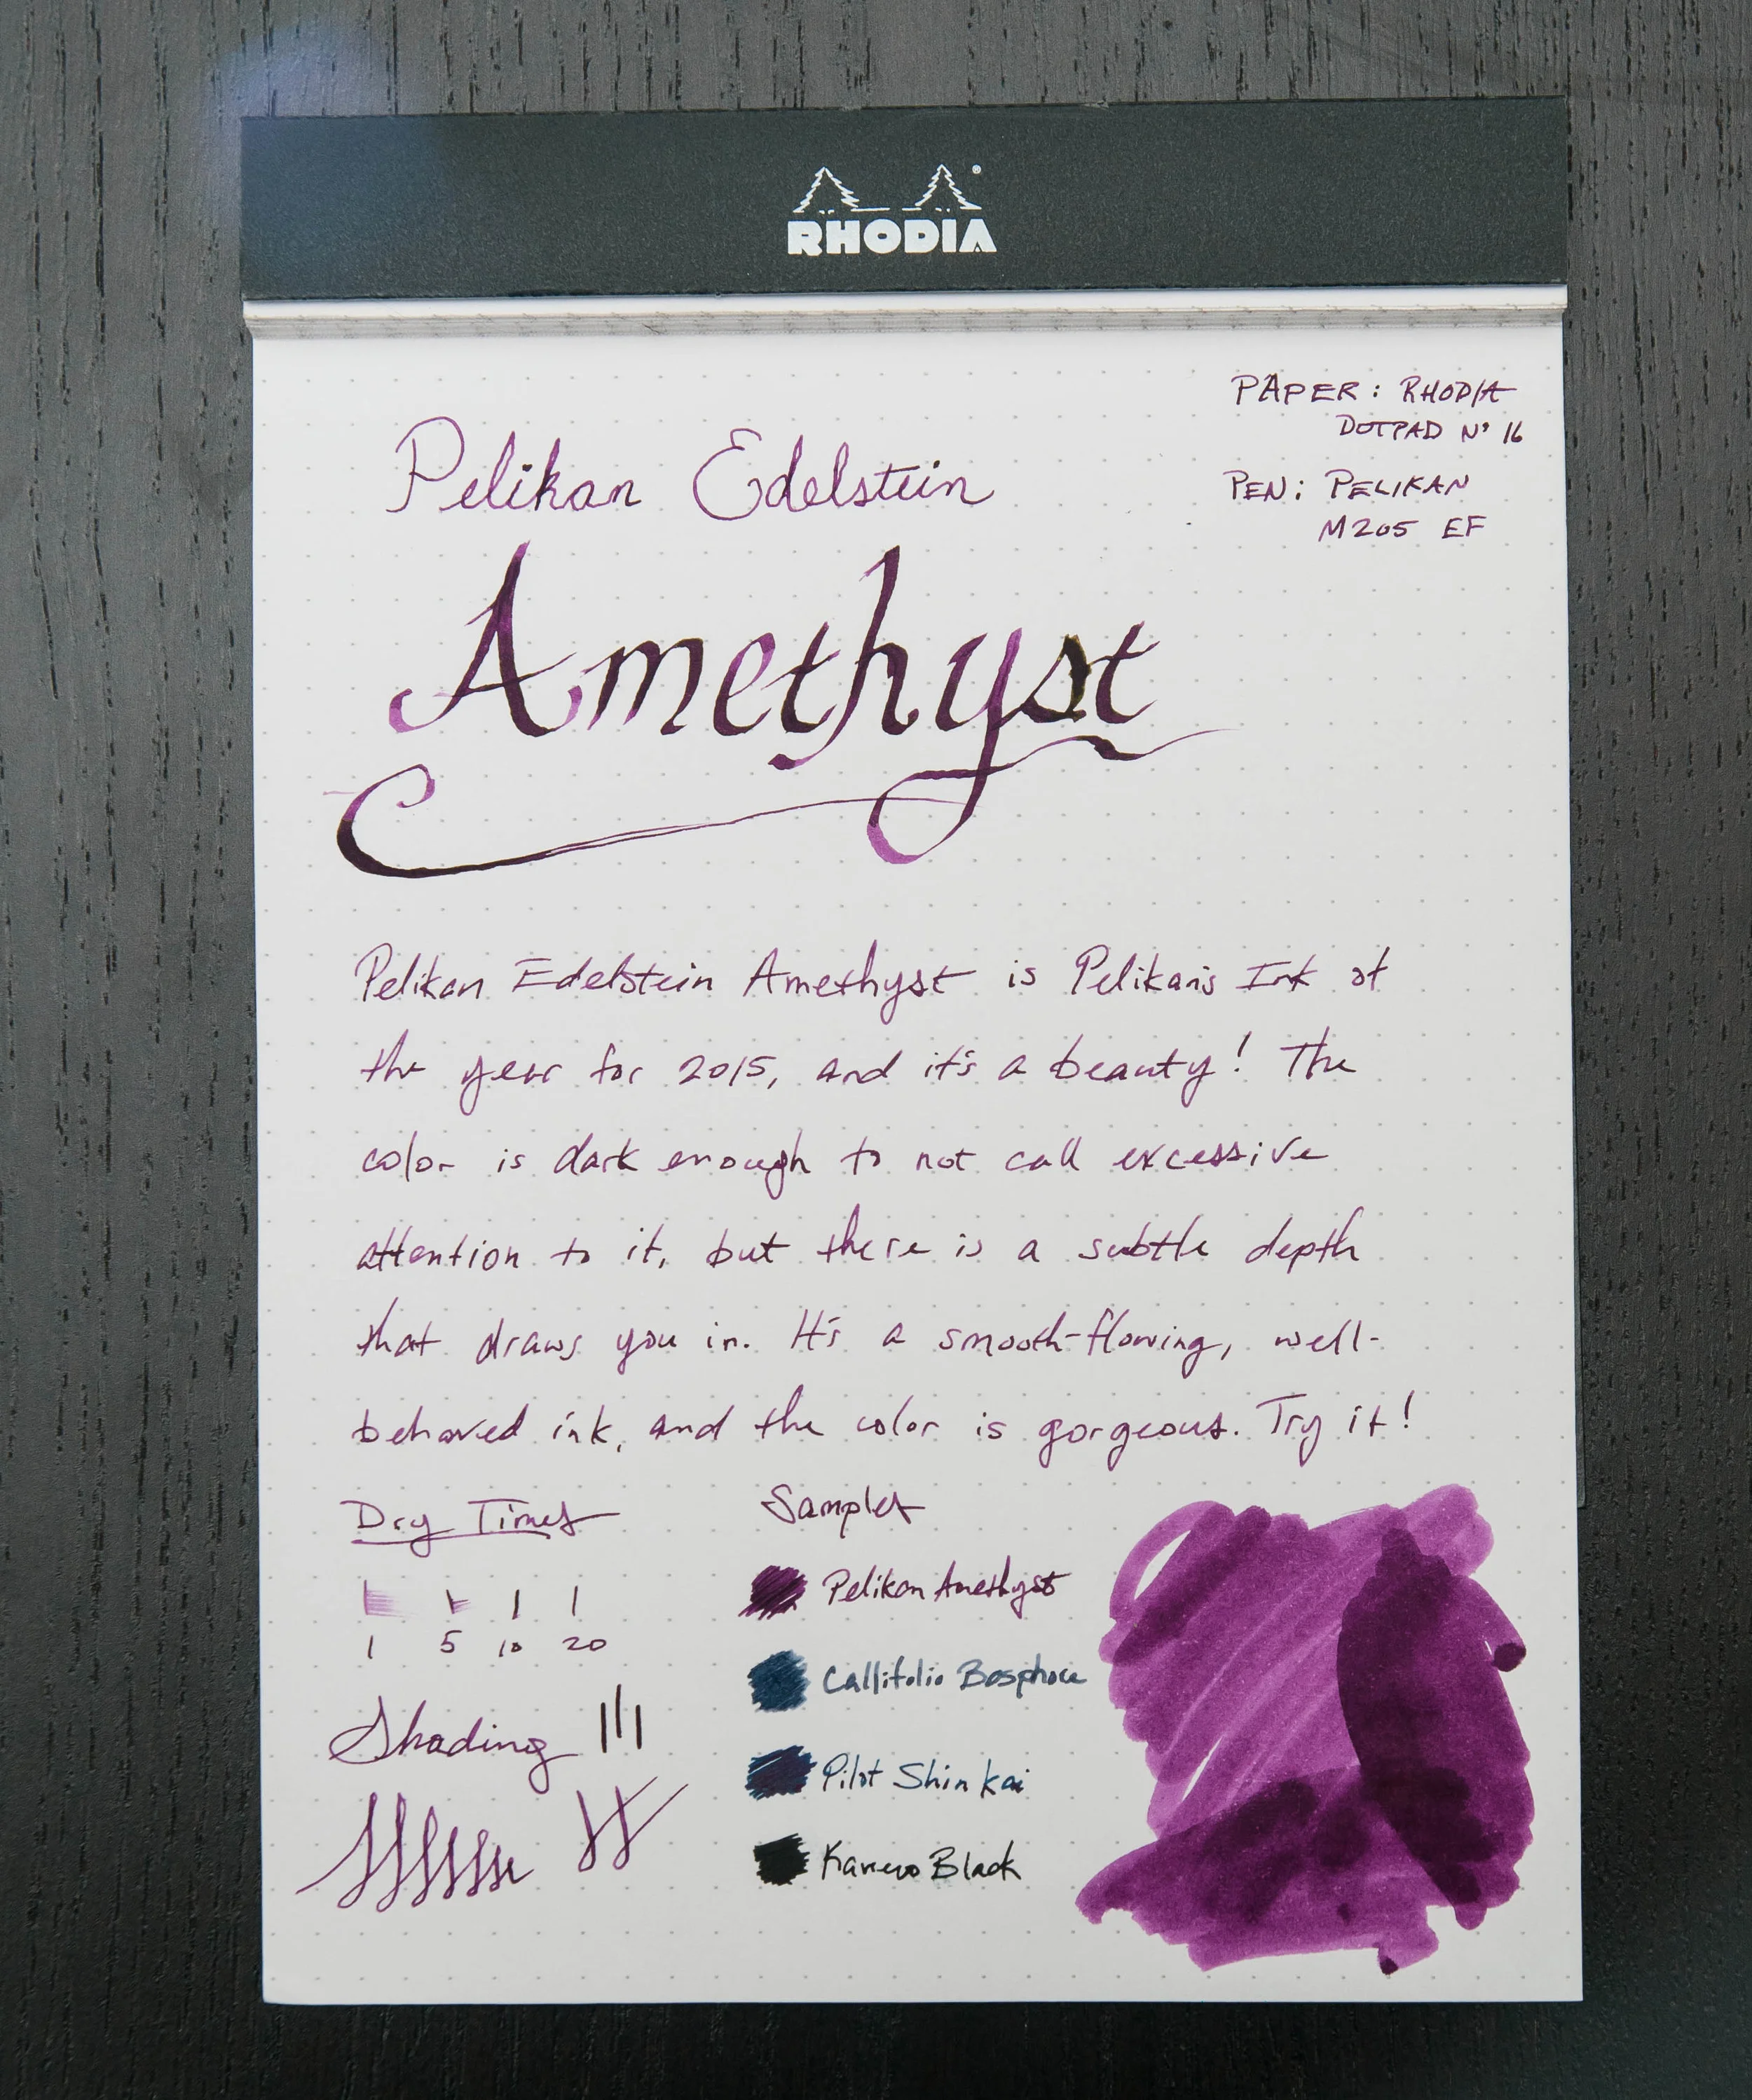 RHODIA
PAPER: RHODIA
DOTPAD Nº 16
PEN: PELIKAN
M205 EF
Pelikan Edelstein
Amethyst
Pelikan Edelstein Amethyst is Pelikan's Ink of
the year for 2015, and it's a beauty! The
color is dark enough to not call excessive
attention to it, but there is a subtle depth
that draws you in. It's a smooth-flowing, well-
behaved ink, and the color is gorgeous. Try it!
Dry Times
1 5 10 20
Shading
Samples
Pelikan Amethyst
Callifolio Bosphore
Pilot Shin kai
Kaweco Black